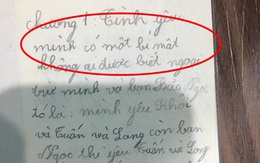 Chương 1: Tình yêu
mình có một bí mật
không ai được biết ngoài
trừ mình và bạn Bảo Ngọc
tó là: mình yêu Khôi
và Tuấn và Lang còn bạn
Ngọc thì yêu Tuấn và Long